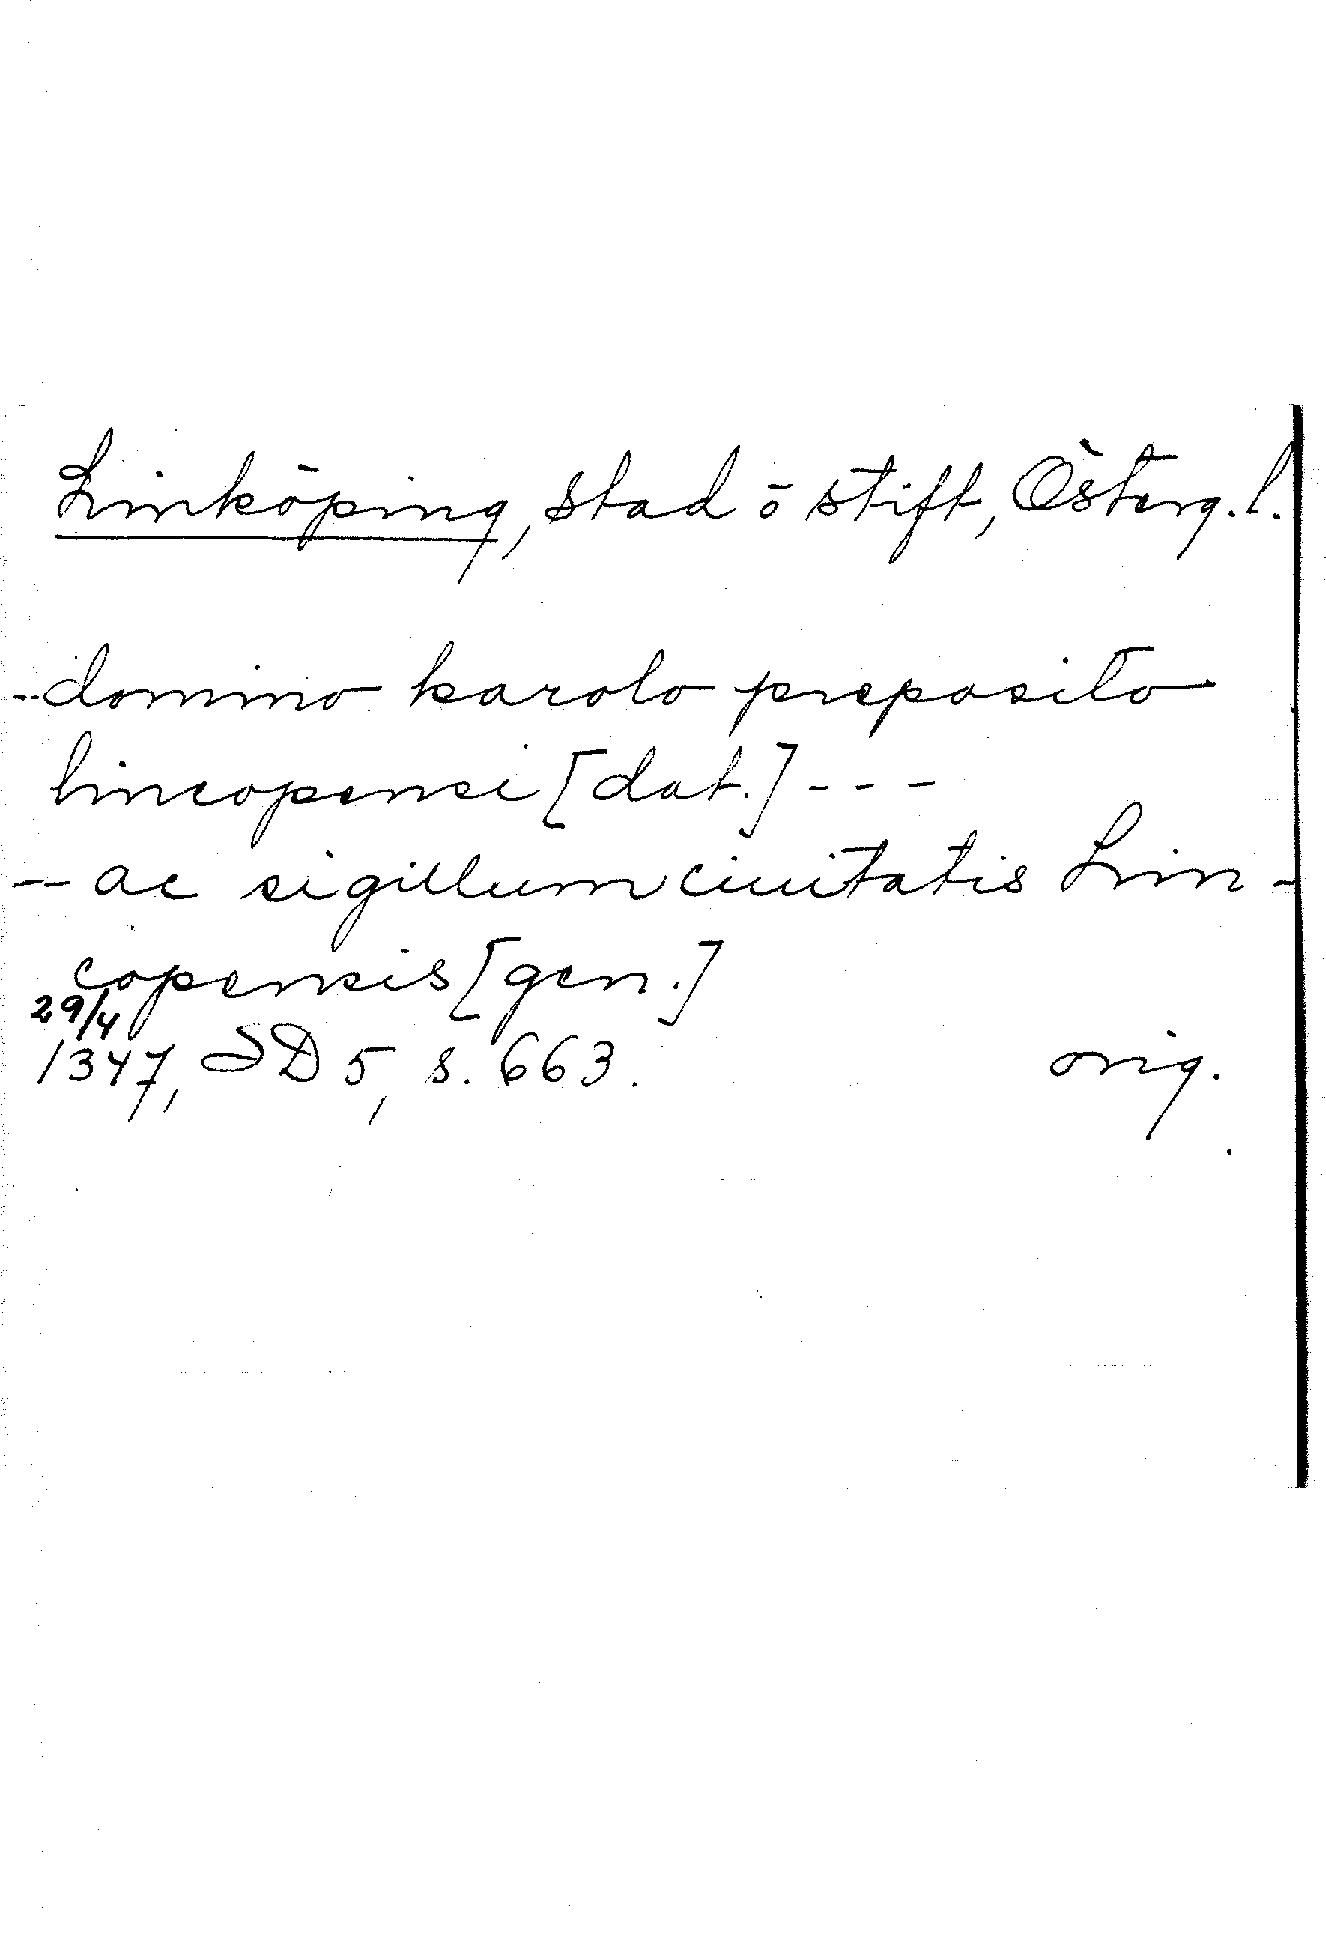 Linköping, stad ö stift, Österg.l.
--domino karolo preposito
lincopensi [dat.] ---
-- ac sigillum ciuitatis Lin-
copensis [gen.]
29/4
1347, SD 5, s. 663. orig.